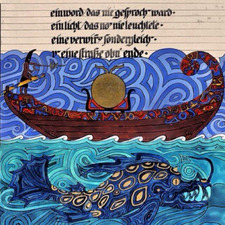 ein wort · das nie gesproch᷉ ward ·
ein licht / das no᷉ nie leuchtete ·
eine verwirr᷉g sondergleich᷉ ·
u᷉ eine straße ohn᷉ ende ·